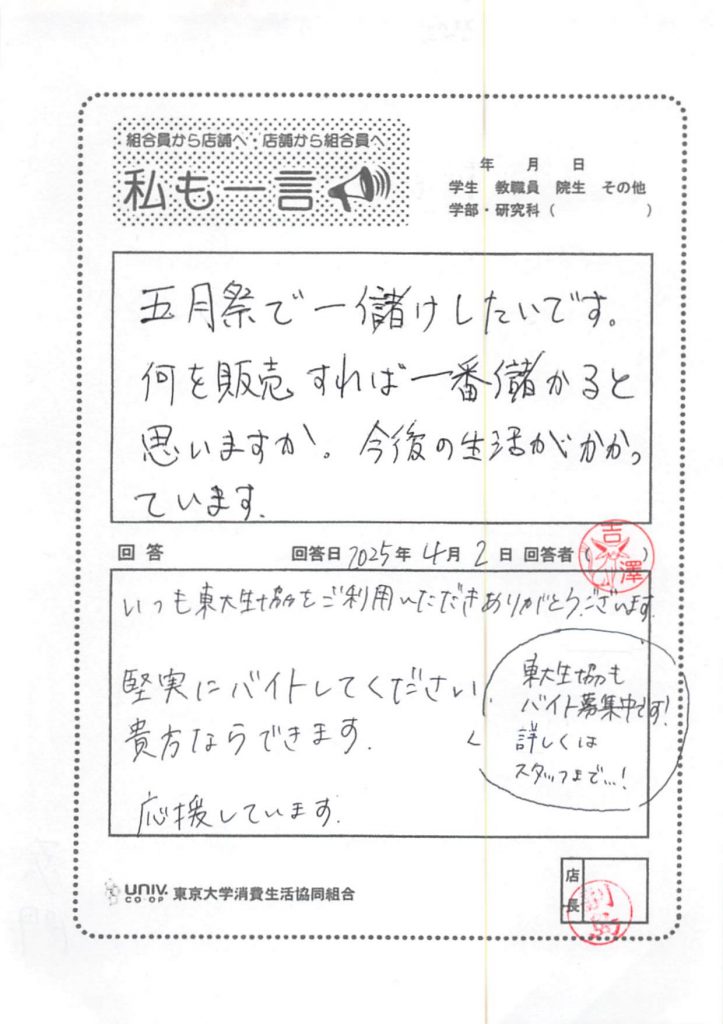 組合員から店舗へ・店舗から組合員へ
私も一言
年 月 日
学生 教職員 院生 その他
学部・研究科( )
五月祭で一儲けしたいです。
何を販売すれば一番儲かると
思いますか。今後の生活がかかっ
ています。
回答 回答日 2025年 4月 2日 回答者( )
吉澤
いつも東大生協をご利用いただきありがとうございます。
堅実にバイトしてください
貴方ならできます。
応援しています。
東大生協も
バイト募集中です!
詳しくは
スタッフまで...!
UNIV.
CO-OP
東京大学消費生活協同組合
店長